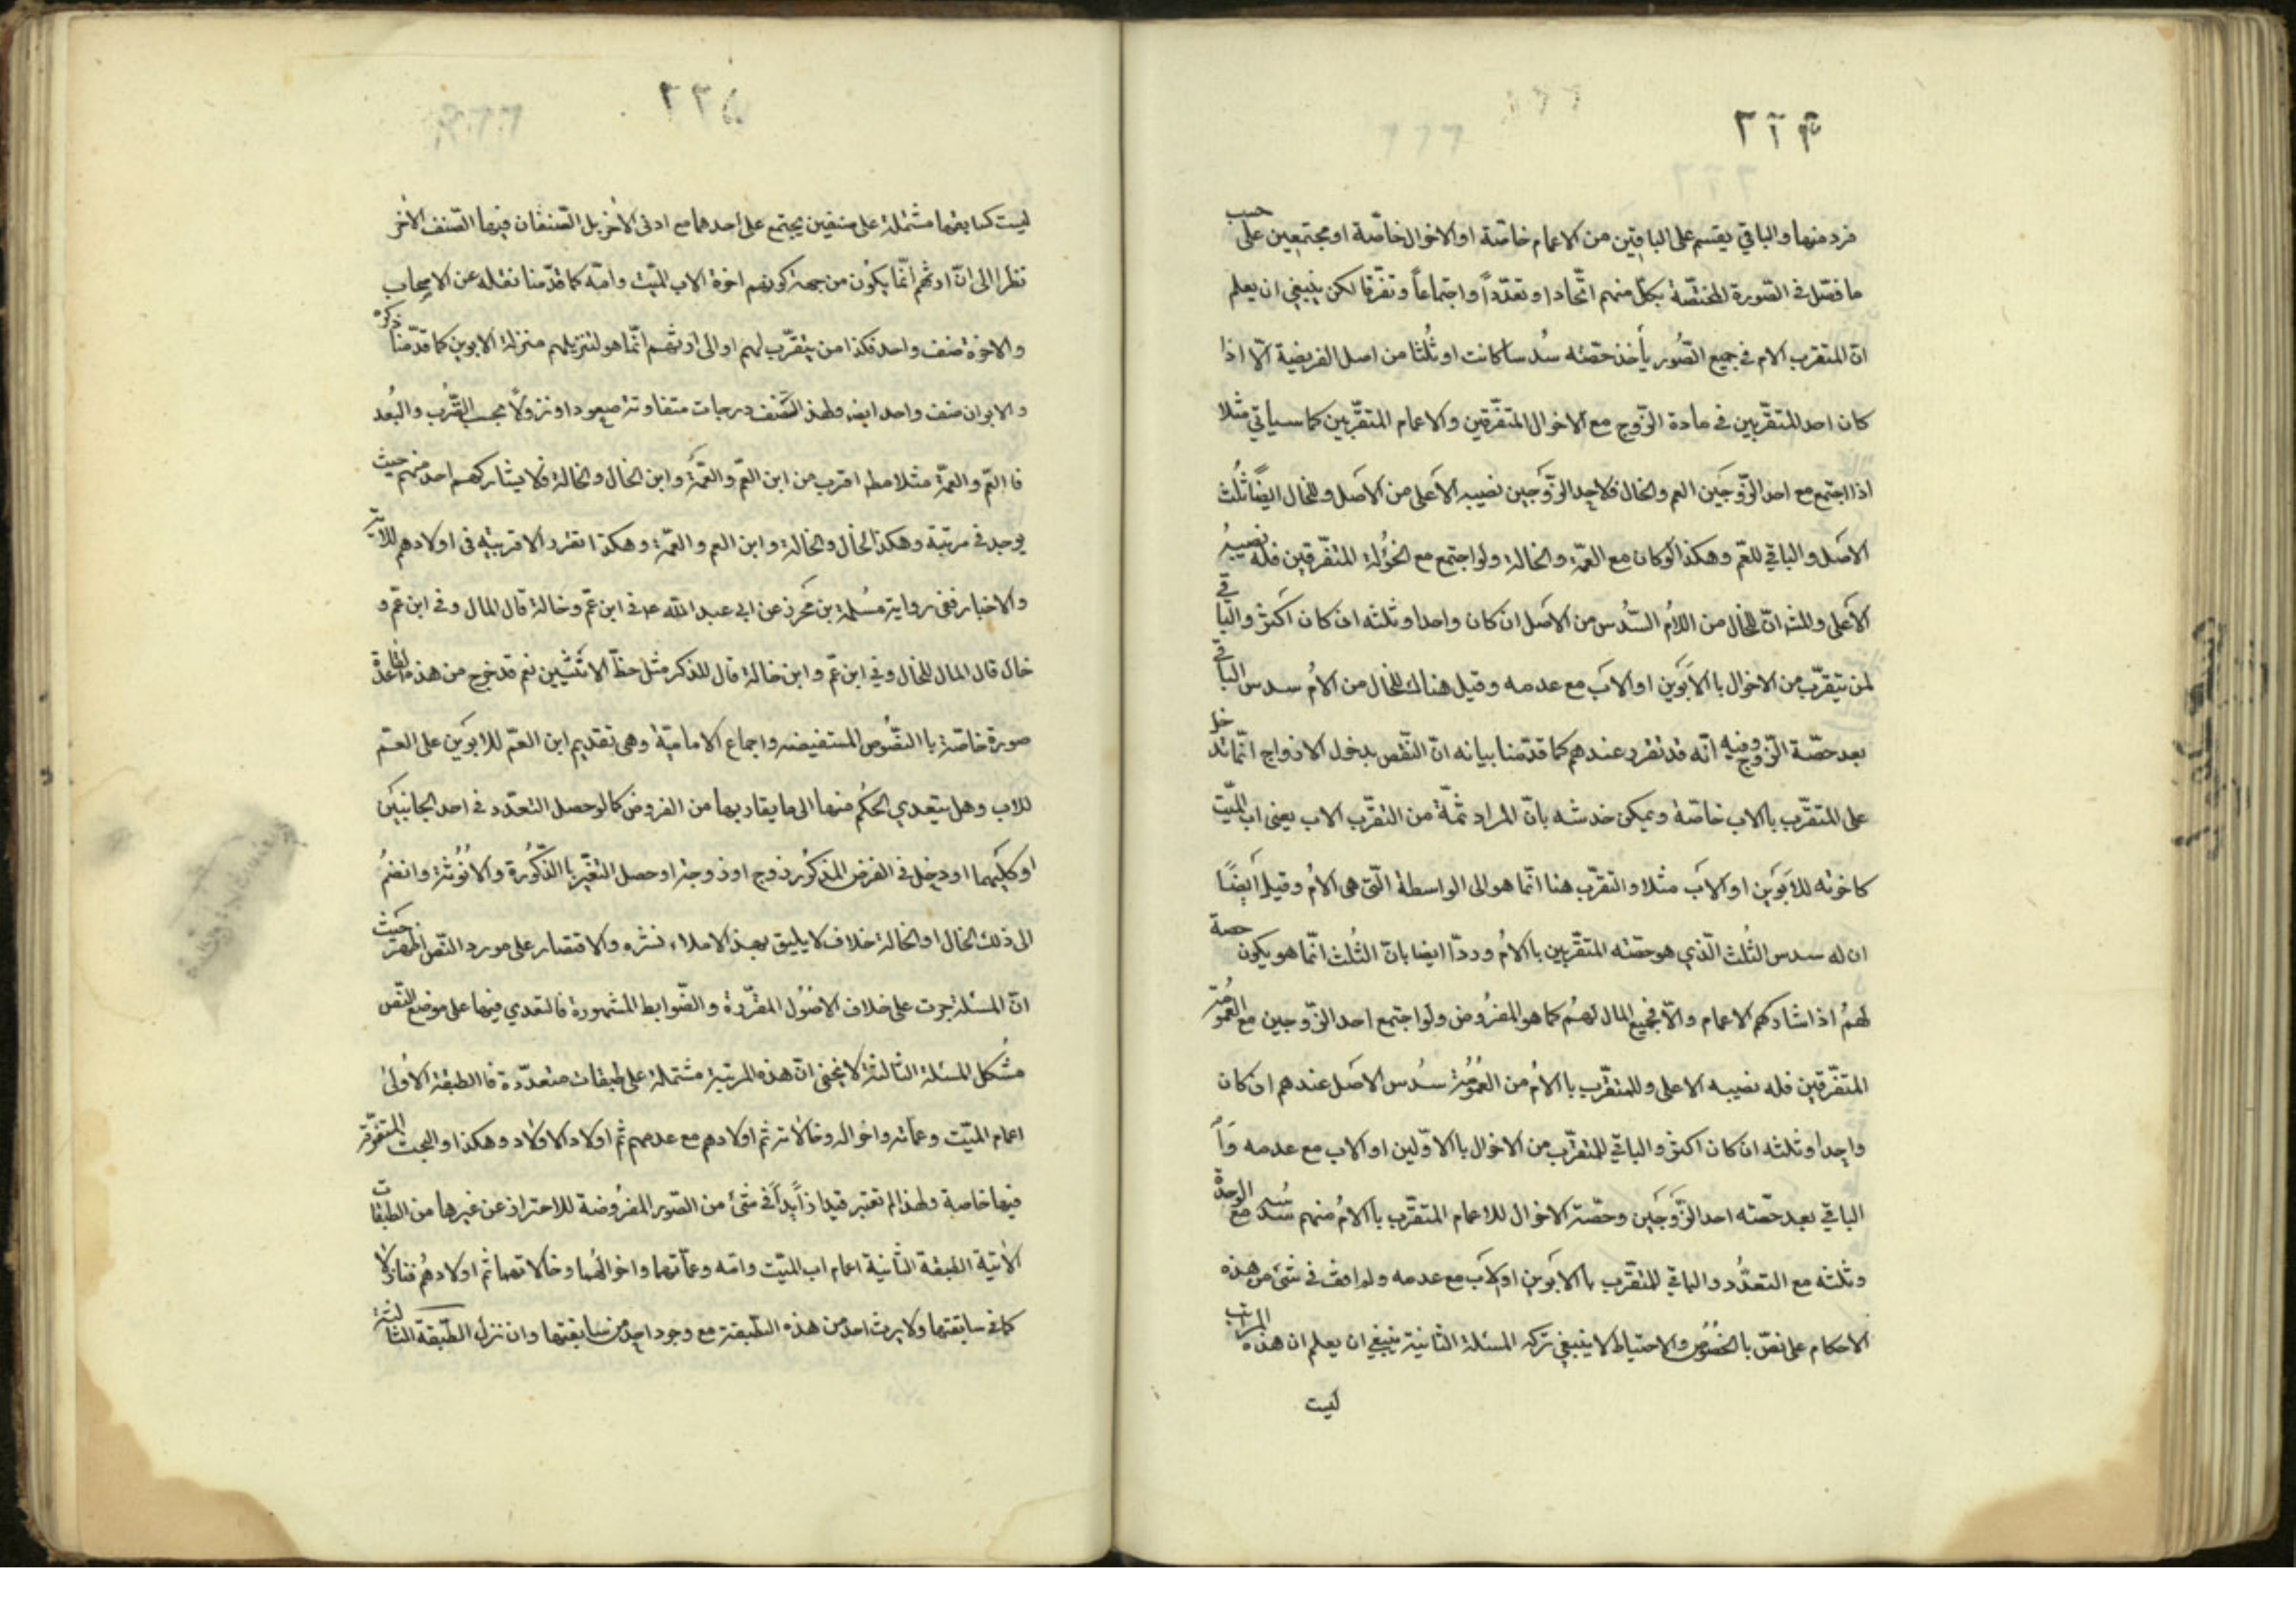 ٢٢٤
فرد منها والباقي يقسم على الباقين من الاعمام خاصّة او الاخوال خاصّة او مجتمعين على حسب
ما فصّل في الصّورة المختصّة بكلّ منهم اتّحادا وتعدّداً واجتماعاً وتفرّقا لكن ينبغي ان يعلم
انّ المتقرب الام في جميع الصُّور يأخذ حصّته سُدسا كانت او ثُلثا من اصل الفريضة الّا اذا
كان احد المتقرّبين في مادة الزّوج مع الاخوال المتفرّقين والاعمام المتقرّبين كما سياتي مثلا
اذا اجتمع مع احد الزّوجَين العم والخال فلاحد الزّوجَين نصيبه الاَعلى من الاَصل وللخال ايضًا ثُلث
الاصَل والباقي للعّم وهكذا لوكان مع العمّة والخالة ولو اجتمع مع الخؤُلة المتفّرقين فله نصيبهُ
الاَعلى والمشه انّ للخال من الاُم السّدُس من الاَصل ان كان واحدا وثلثه ان كان اكثر والباقي
لمن يتقرّب من الاخوال با الاَبَوَين او الاَب مع عدمه وقيل هناك للخال من الاُم سدس الباقي
بعد حصّة الزّوج وفيه انّه قد تفرد عندهم كما قدّمنا بيانه انّ النّقص بدخول الازواج انّما يدخل
على المتقرّب با الاب خاصّة ويمكن خدشه بانّ المراد ثمّة من التقرّب الاب يعنى اب الميّت
كاخوته للاَبَوَين او الاَب مثلا والتقرّب هنا انّما هو الى الواسطة الّتى هى الاُم وقيل اَيضًا
ان له سدس الثُلث الّذي هو حصّته المتقرّبين با الاُم وردّ ايضا بانّ الثُلث انّما هو يكون حصة
لهمُ اذا شاركهم الاعمام والاّ فجميع المال لهمُ كما هو المفرُوض ولو اجتمع احد الزّوجين مع العمُومَة
المتفّرقين فله نصيبه الاعلى وللمتقرّب با الاُم من العُمُومَة سُدس الاصَل عندهم ان كان
واحِدا وثلثه ان كان اكثر والباقي للمتقرّب من الاخوال با الاوّلين او الاب مع عدمه
الباقي بعد حصّته احد الزّوجَين وحصّة الاخوال للاعمام المتقرّب با الامُ منهم سُدسه مع الوحدة
وثلثه مع التعدُّد والباقي للمتقرّب با الاَبوين او الاَب مع عدمه ولم اقف في شئ من هذه
الاحكام على نصّ با الخصُوص والاحتياط لا ينبغي تركه المسئلة الثانية ينبغي ان يعلم ان هذه المراتب
ليست
٢٢٥
ليست كسابقها مشتملة على صنفين يجتمع على احدهما مع ادنى الاخر بل الصّنفان فيها الصّنف الاخر
نظرا الى انّ ارثهم انّما يكُون من جهة كونهم اخوة الاب الميّت وامّه كما قدّمنا نقله عن الاصحاب
والاخوة صنف واحد فكذا من يتقرّب لهم او الى ارثهم انّما هو لتنزيلهم منزلة الابوين كما قدّمنا ذكره
والابوان صنف واحد ايضا ولهذا الصّنف درجات متفاوتة صعودا ونزولًا بحسب القُرب والبُعد
فا العّم والعمّة مثلا مطه اقرب من ابن العّم والعّمةَ وابن الخال والخالة فلا يشاركهم احد منهم حيث
يوجد في مرتبة وهكذا الخال والخالة وابن العم والعمّة وهكذا انفرد الاقربيّه فى اولادهم للاية
والاخبار ففي رواية مسُلمة بن محرز عن ابي عبد الله ع في ابن عّم وخالة قال المال وفي ابن عّم و
خال قال المال للخال وفي ابن عّم وابن خالة قال للذكر مثل حظّ الانثيين نعم قد خرج من هذه القاعدة
صورة خاصّة با النصُّوص المستفيضه واجماع الاماميّة وهى تقديم ابن العّم للابوَين على العّم
للاب وهل يتعدي الحكُم منها الى ما يقاربها من الفروض كما لو حصل التعدّد في احد الجانبيَن
او كليَهما او دخل في الفرض المذكوُر زوج او زوجة او حصل التغيّر با الذّكوُرة والانُوثة وانضمُ
الى ذلك الخال او الخالة خلاف لا يليق بهذ الاملاء نشره والاقتصار على مورد النّص اظهر حَيث
انّ المسئلة جرت على خلاف الاصُوُل المقرّرة والضّوابط المشهورة فالتعدي فيها على موضع النّص
مشُكل المسئلة الثالثة لا يخفى انّ هذه المرتبة مشتملة على طبقات متعدّدة فا الطبقة الاوُلى
اعمام الميّت وعمّاته واخواله وخالاته ثم اولادهم مع عدمهم ثّم اولاد الاولاد وهكذا والبحث المتفرّقة
فيها خاصة ولهذا لم تعتبر قيدا زاَيداً في شئ من الصّور المفرُوضة للاحتراز عن غيرها من الطبقات
الاتية الطبقة الثّانية اعمام اب الميّت وامّه وعمّاتهما واخوالهُما وخالاتهما ثّم اولادهُم فنازلا
كما في سابقتها ولا يرث احد من هذه الطّبقة مع وجود احد من سابقتها وان نزل الطّبقة الثالثة